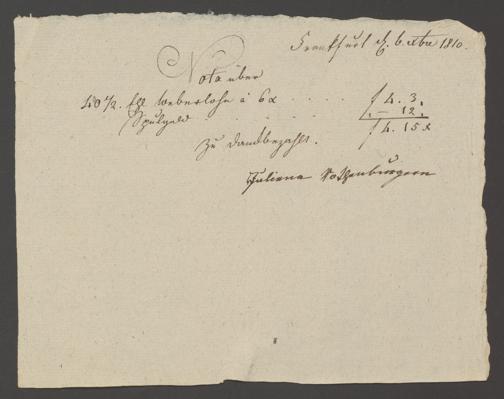 Frankfurt d. 6. xbre 1810.
Nota über
40 ½. Ell Weberlohn à 6x . . . . f 4. 3.
Spulgeld . . . . . . – 12.
f 4. 15x
Zu Dank bezahlt.
Juliana Rothenburgern